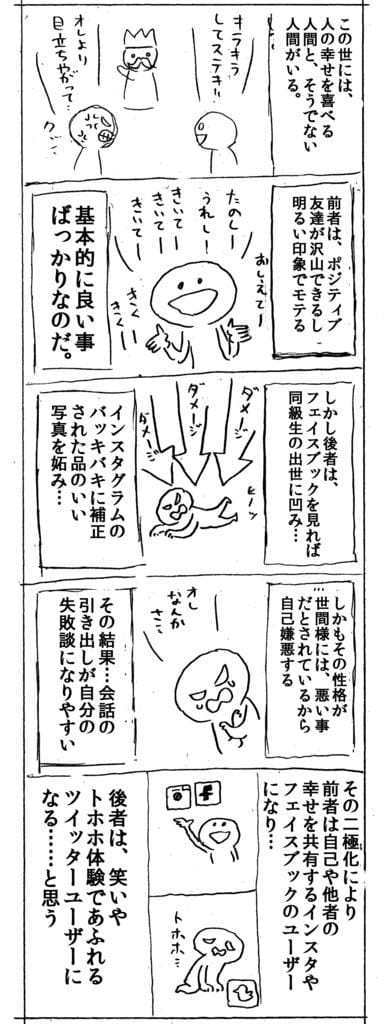 この世には、
人の幸せを喜べる
人間と、そうでない
人間がいる。
キラキラ
してステキ!!
オレより
目立ちやがって…
グググ…
前者は、ポジティブ
友達が沢山できるし
明るい印象でモテる
おしえてー
たのしー
うれしー
きいて
きいて
きいてー
きくー
きくー
基本的に良い事
ばっかりなのだ。
しかし後者は、
フェイスブックを見れば
同級生の出世に凹み…
ダメージ
ダメージ
ダメージ
インスタグラムの
バッキバキに補正
された品のいい
写真を妬み…
しかもその性格が
…世間様には、悪い事
だとされているから
自己嫌悪する
オレ
なんか
さ…
その結果…会話の
引き出しが自分の
失敗談になりやすい
その二極化により
前者は自己や他者の
幸せを共有するインスタや
フェイスブックのユーザー
になり…
f
トホホ…
後者は、笑いや
トホホ体験であふれる
ツイッターユーザーに
なる……と思う